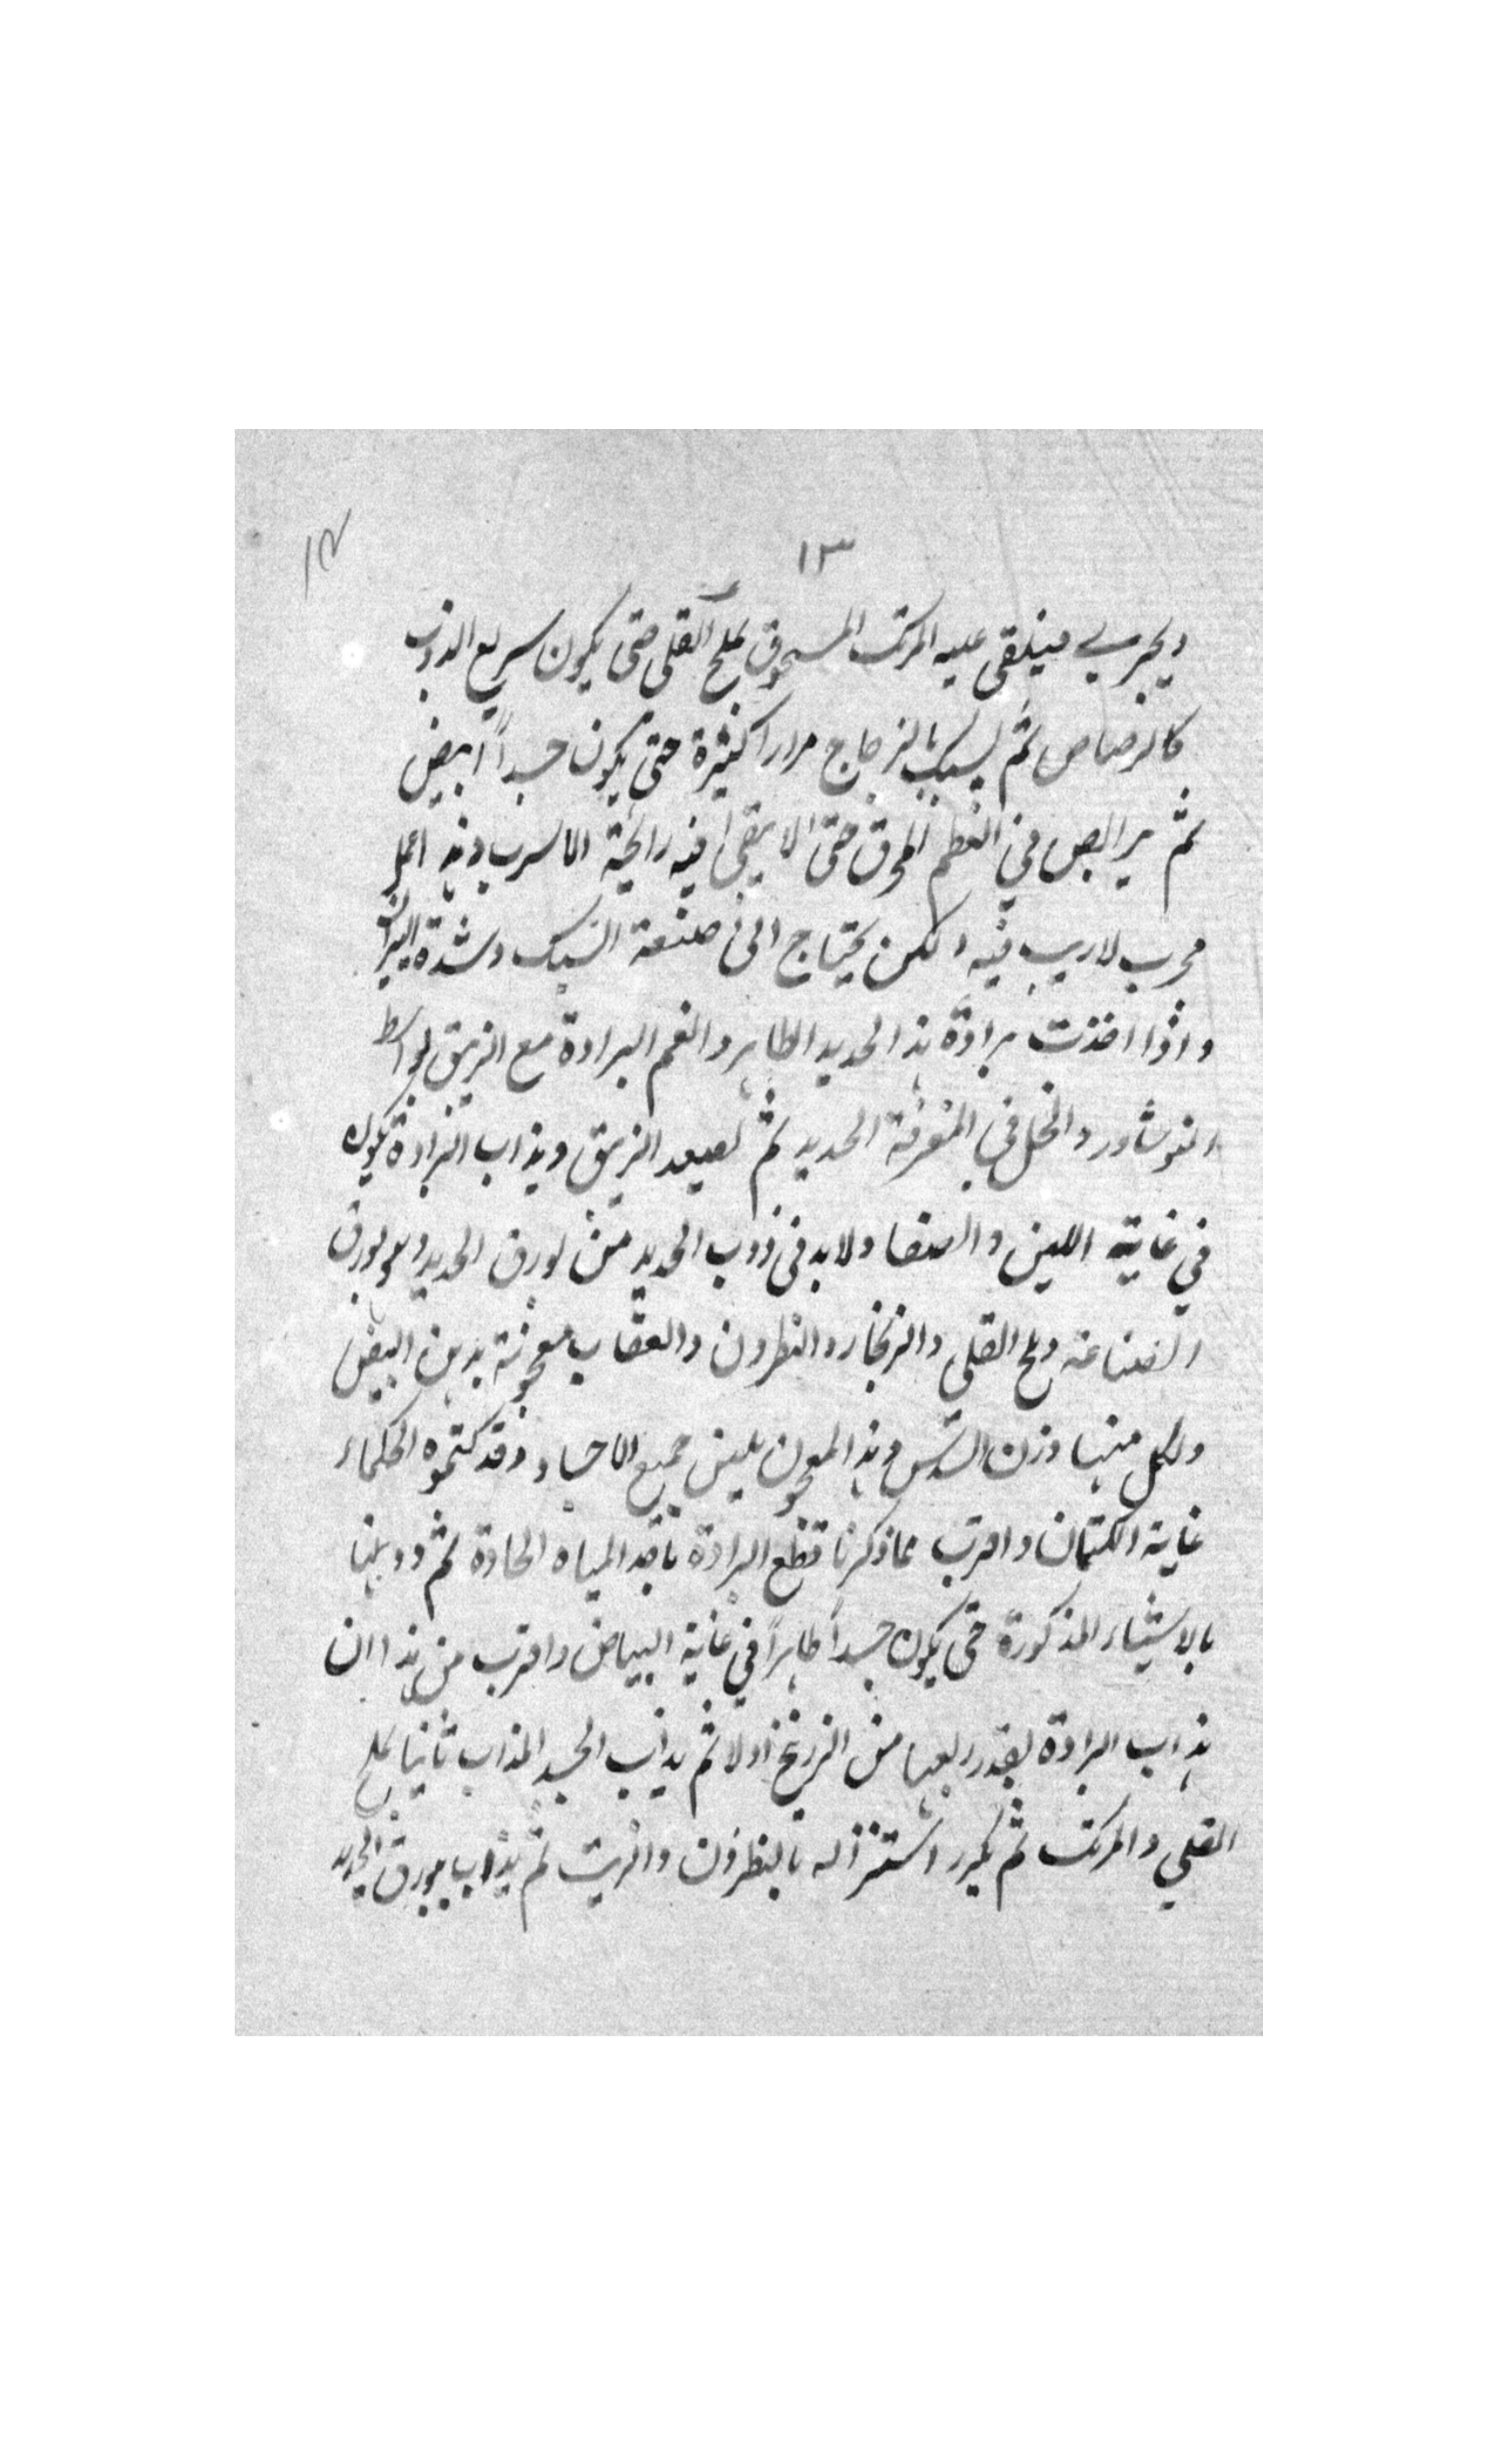 ١٣
ويجري فيلقى عليه المرتك المسحوق بملح القلى حتى يكون سريع الذوب
كالرصاص ثم يسبك بالزجاج مرارا كثيرة حتى يكون جسداً ابيض
ثم يرابص في العظم المحرق حتى لا يبقى فيه رائحة الاسرب وهذا عمل
مجرب لا ريب فيه ولكن يحتاج الى صنعة السبك وشدة النيران
واذا اخذت برادة هذا الحديد الطاهر والغم البرادة مع الزيبق بواسط
النوشادر والخل في المغرفة الحديد ثم تصيعد الزيبق ويذاب البرادة يكون
في غاية اللين والصفا ولا بد في ذوب الحديد من بورق الحديد وهو بورق
الصناعة وملح القلي والزنجار والنطرون والعقاب معجونة بدهن البيض
ولكل منها وزن السدس وهذا المعجون يلين جميع الاجساد وقد كتموه الحكماء
غاية الكتمان واقرب مما ذكرنا قطع البرادة باحد المياه الحادة ثم ذوبها
بالاشياء المذكورة حتى يكون جسداً طاهراً في غاية البياض واقرب من هذا ان
يذاب البرادة بقدر ربعها من الزرنيخ اولا ثم يذاب الجسد المذاب ثانيا بملح
القلي والمرتك ثم يكرر استنزاله بالنطرون والزيت ثم يذاب ببورق الحديد